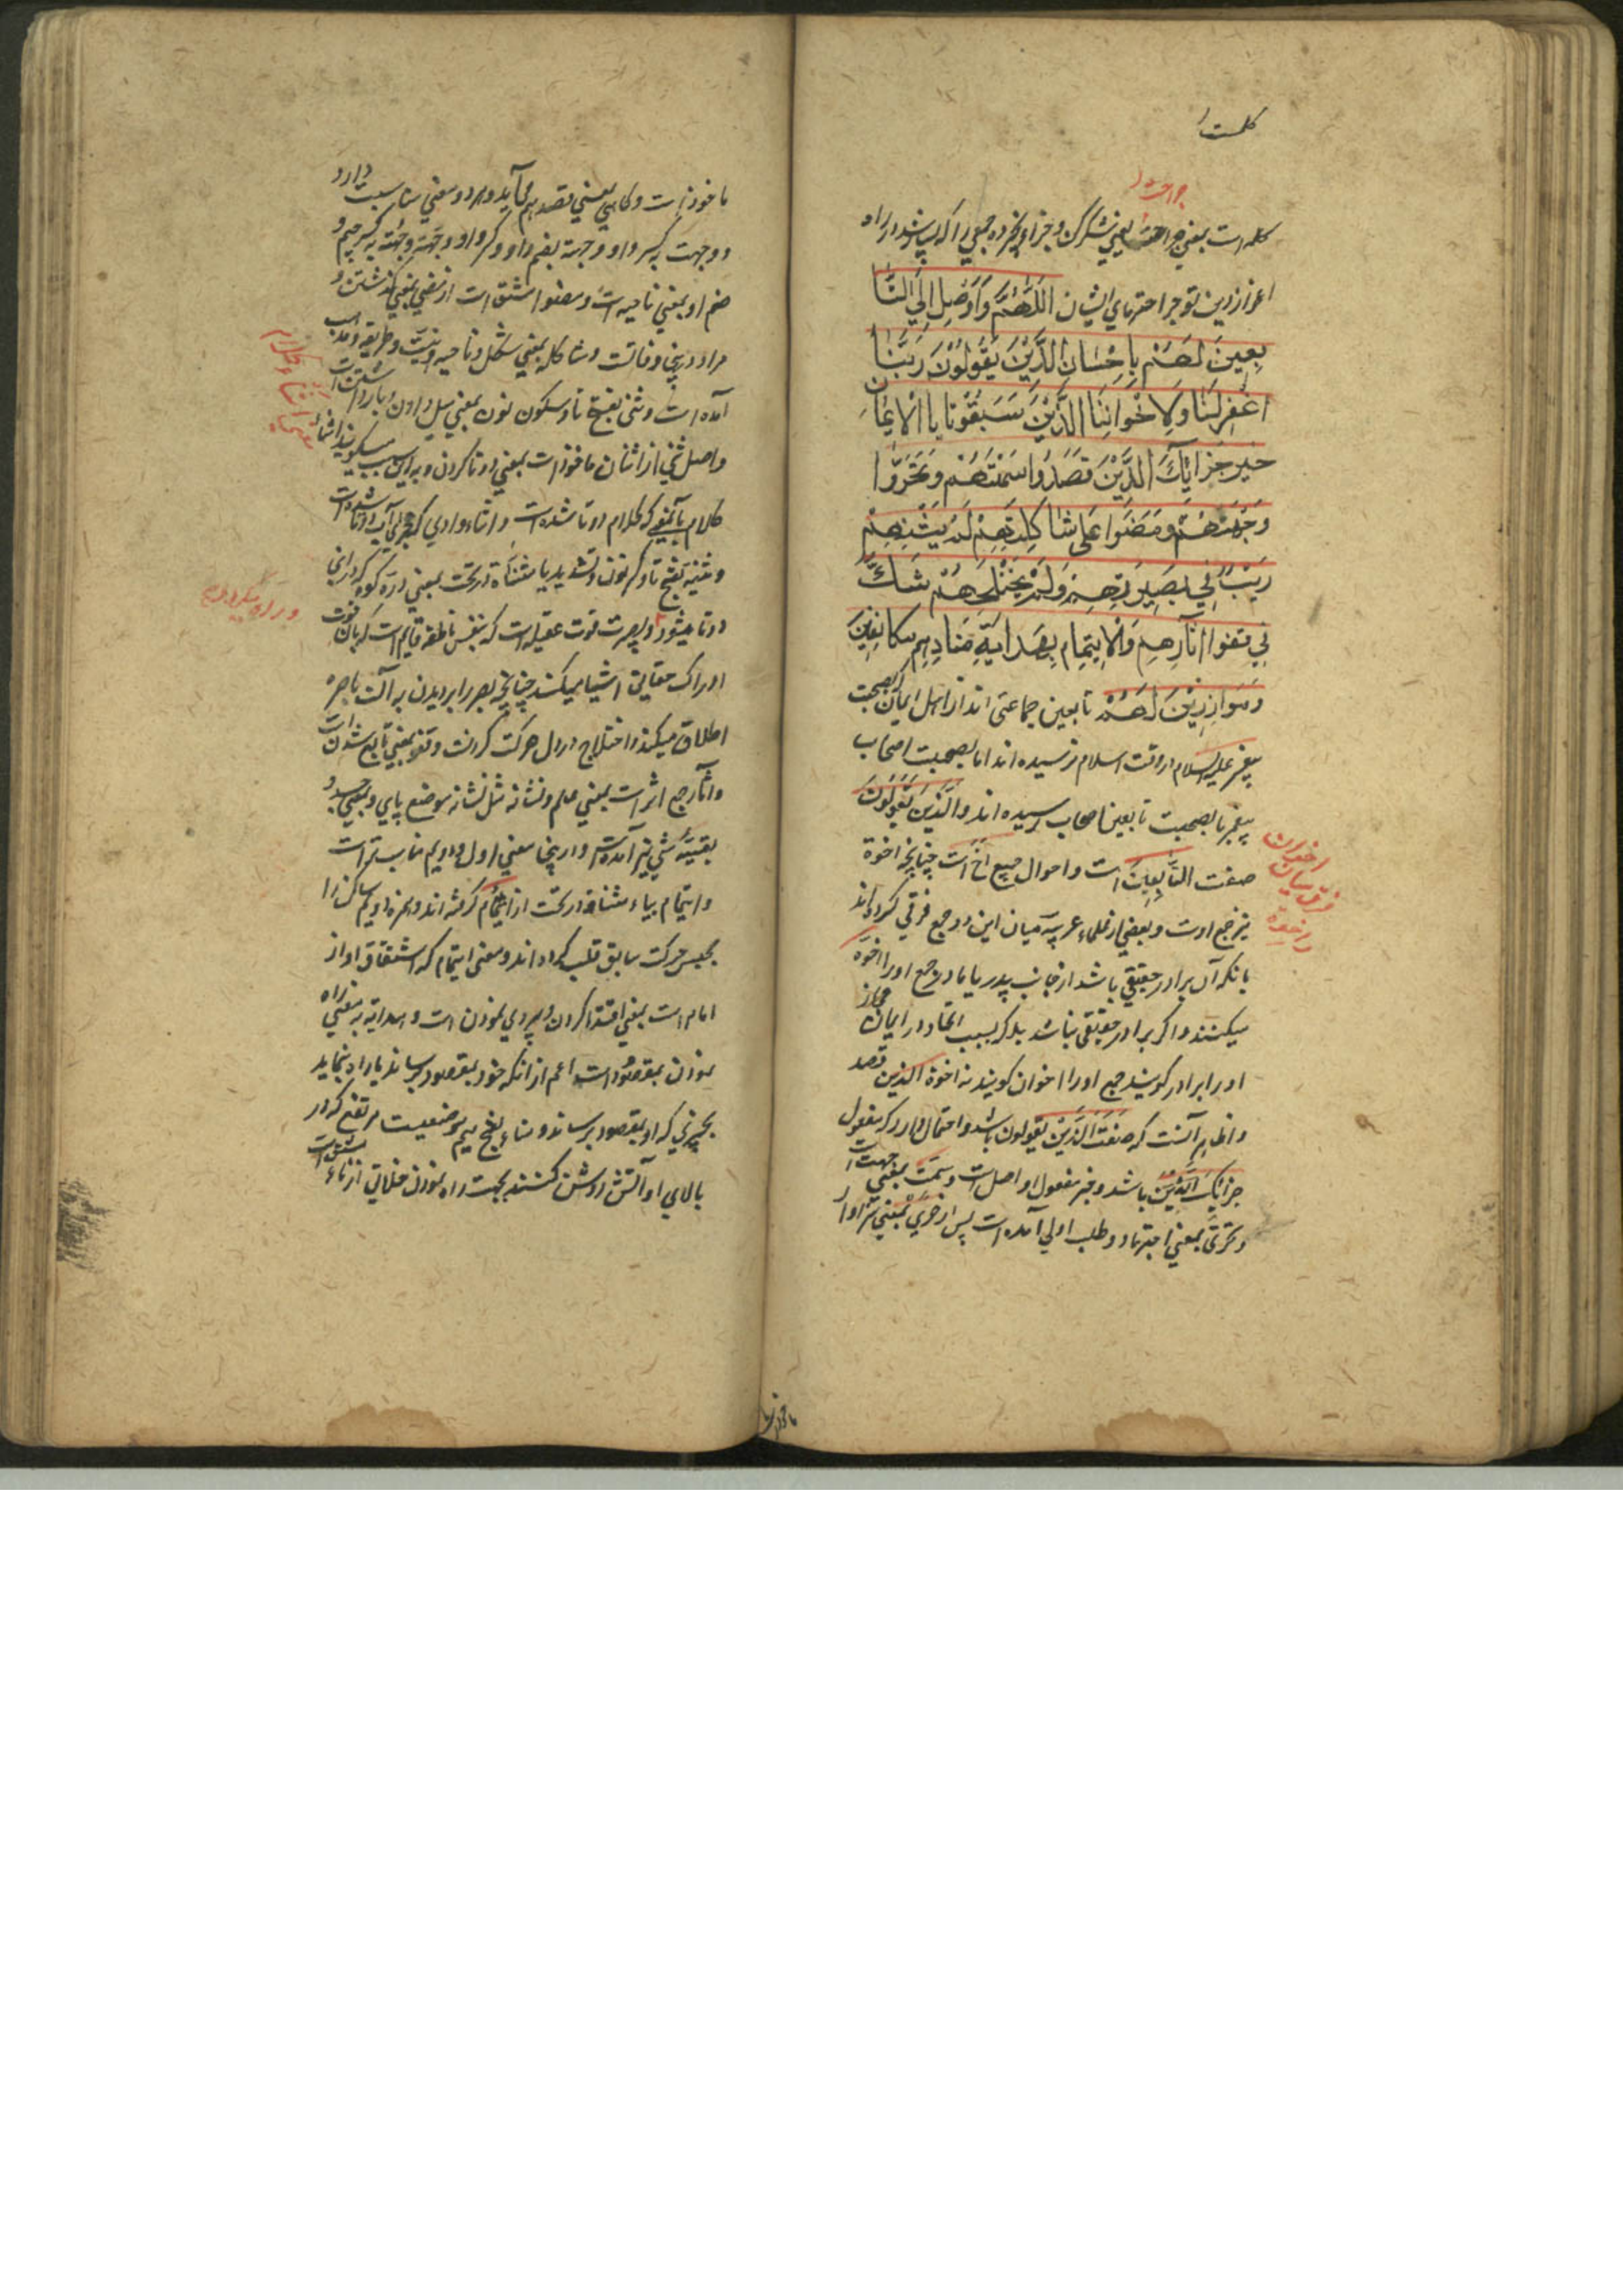 کلمست
جراحت
کلمه است بمعنی جراحت یعنی شکر کن و جزا و بخر ده جمعی را که باشد در راه
اعزاز دین تو جراحتهای ایشان اَللّٰهُمَّ وَاَوْصِلْ اِلَی التَّا
بِعِینَ لَهُمْ بِاِحْسَانِ الَّذِیْنَ یَقُوْلُوْنَ رَبَّنَا
اغْفِرْلَنَا وَلِاِخْوَانِنَا الَّذِیْنَ سَبَقُوْنَا بِالْاِیْمَانِ
خَیْرَ جَزَائِكَ الَّذِیْنَ قَصَدُوْا سَمْتَهُمْ وَتَحَرَّوْا
وِجْهَتَهُمْ وَمَضَوْا عَلیٰ شَاکِلَتِهِمْ لَمْ یَثْنِهِمْ
رَیْبٌ فِي بَصِیْرَتِهِمْ وَلَمْ یَخْتَلِجْهُمْ شَكٌّ
فِي قَفْوِ اٰثَارِهِمْ وَالْاِیْتِمَامِ بِهِدَایَةِ مَنَارِهِمْ مُکَانِفِیْنَ
وَمُوَازِرِیْنَ لَهُمْ تابعین جماعتی اند از اهل ایمان که بصحبت
پیغمبر علیه السلام در وقت اسلام نرسیده اند اما بصحبت اصحاب
پیغمبر یا بصحبت تابعین اصحاب رسیده اند و الَّذِیْنَ یَقُوْلُوْنَ
صفت التَّابِعِیْنَ است و اخوان جمع اخ است چنانچه اخوة
نیز جمع اوست و بعضی از علماء عربیه میان این دو جمع فرقی کرده اند
بانکه آن برادر حقیقی باشد از جانب پدر یا مادر جمع او را اخوة
میکنند و اگر برادر حقیقی نباشد بلکه بسبب اتحاد در ایمان مجاز
او را برادر گویند جمع او را اخوان گویند نه اخوة الذین قصد
و اظهر آنست که صفت الَّذِیْنَ یقولون باشد و احتمال دارد که مفعول
جزائک الَّذِیْنَ باشد و خبر مفعول او اصل است و سمت بمعنی جهت است
و تحرّی بمعنی اجتهاد و طلب اولی آمده است پس از حری بمعنی سزاوار
اخوان
فرق میان
و اخوة
ماخوذ است و گاهی بمعنی قصد هم می آید و هر دو معنی مناسبت دارد
و وجهت بکسر واو و وجهة بضم واو و کسر واو وجهة وجهة بکسر جیم و
ضم او بمعنی ناحیه است و مضوا مشتق است از مضی بمعنی گذشتن و
مراد درینجا و فاتست و شاکله بمعنی شکل و ناحیه و نیت و طریقه و مذهب
آمده است و ثنی بفتح ثا و سکون نون بمعنی میل دادن و بازداشتن است
و اصل ثنی از اثنان ماخوذ است بمعنی دوتا کردن و به این سبب میگویند اثناء
کلام بآنمعنی که کلام دوتا شده است و اثناء وادی که مجرای آب دوتا شده است
و ثنیه بفتح ثا و کسر نون و تشدید یا مثناة در تحت بمعنی دره کوه که در انجا
دوتا میشود و بصیرت قوت عقلیه است که بنفس ناطقه قایم است که بان قوت
ادراک حقایق اشیا میکند چنانچه بصر را بر دیدن به آلت باصره
اطلاق میکند و اختلاج در دل حرکت کردنست و قفو بمعنی تابع شدن است
و آثار جمع اثر است بمعنی علم و نشانه مثل نشانه موضع پای و بمعنی جسد و
بقیّه شی نیز آمده است و درینجا معنی اول و دویم مناسب تر است
و ایتمام بیاء مثناة در تحت از ائتمام گرفته اند و همزه دویم ساکن را
بجنس حرکت سابق قلب کرده اند و معنی ایتمام که اشتقاق او از
امام است بمعنی اقتدا کردن و پیروی نمودن است و هدایة به معنی راه
نمودن بمقصود است اعم از انکه خود بمقصود برساند یا راه بنماید
بچیزی که او بمقصود برساند و منار بفتح میم موضعیست مرتفع که در
بالای او آتش روشن کنند بجهت راه نمودن خلایق از ماء مشتق است